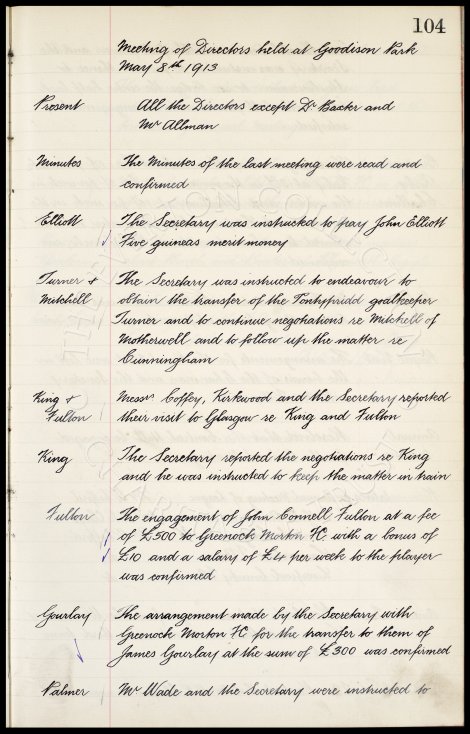 104
Meeting of Directors held at Goodison Park
May 8th 1913
Present All the Directors except Dr Baxter and
Mr Allman
Minutes The Minutes of the last meeting were read and
confirmed
Elliott The Secretary was instructed to pay John Elliott
Five guineas merit money
Turner & The Secretary was instructed to endeavour to
Mitchell obtain the transfer of the Pontypridd goalkeeper
Turner and to continue negotiations re Mitchell of
Motherwell and to follow up the matter re
Cunningham
King & Messrs Coffey, Kirkwood and the Secretary reported
Fulton their visit to Glasgow re King and Fulton
King The Secretary reported the negotiations re King
and he was instructed to keep the matter in train
Fulton The engagement of John Connell Fulton at a fee
of £500 to Greenock Morton FC with a bonus of
£10 and a salary of £4 per week to the player
was confirmed
Gourlay The arrangement made by the Secretary with
Greenock Morton FC for the transfer to them of
James Gourlay at the sum of £300 was confirmed
Palmer Mr Wade and the Secretary were instructed to